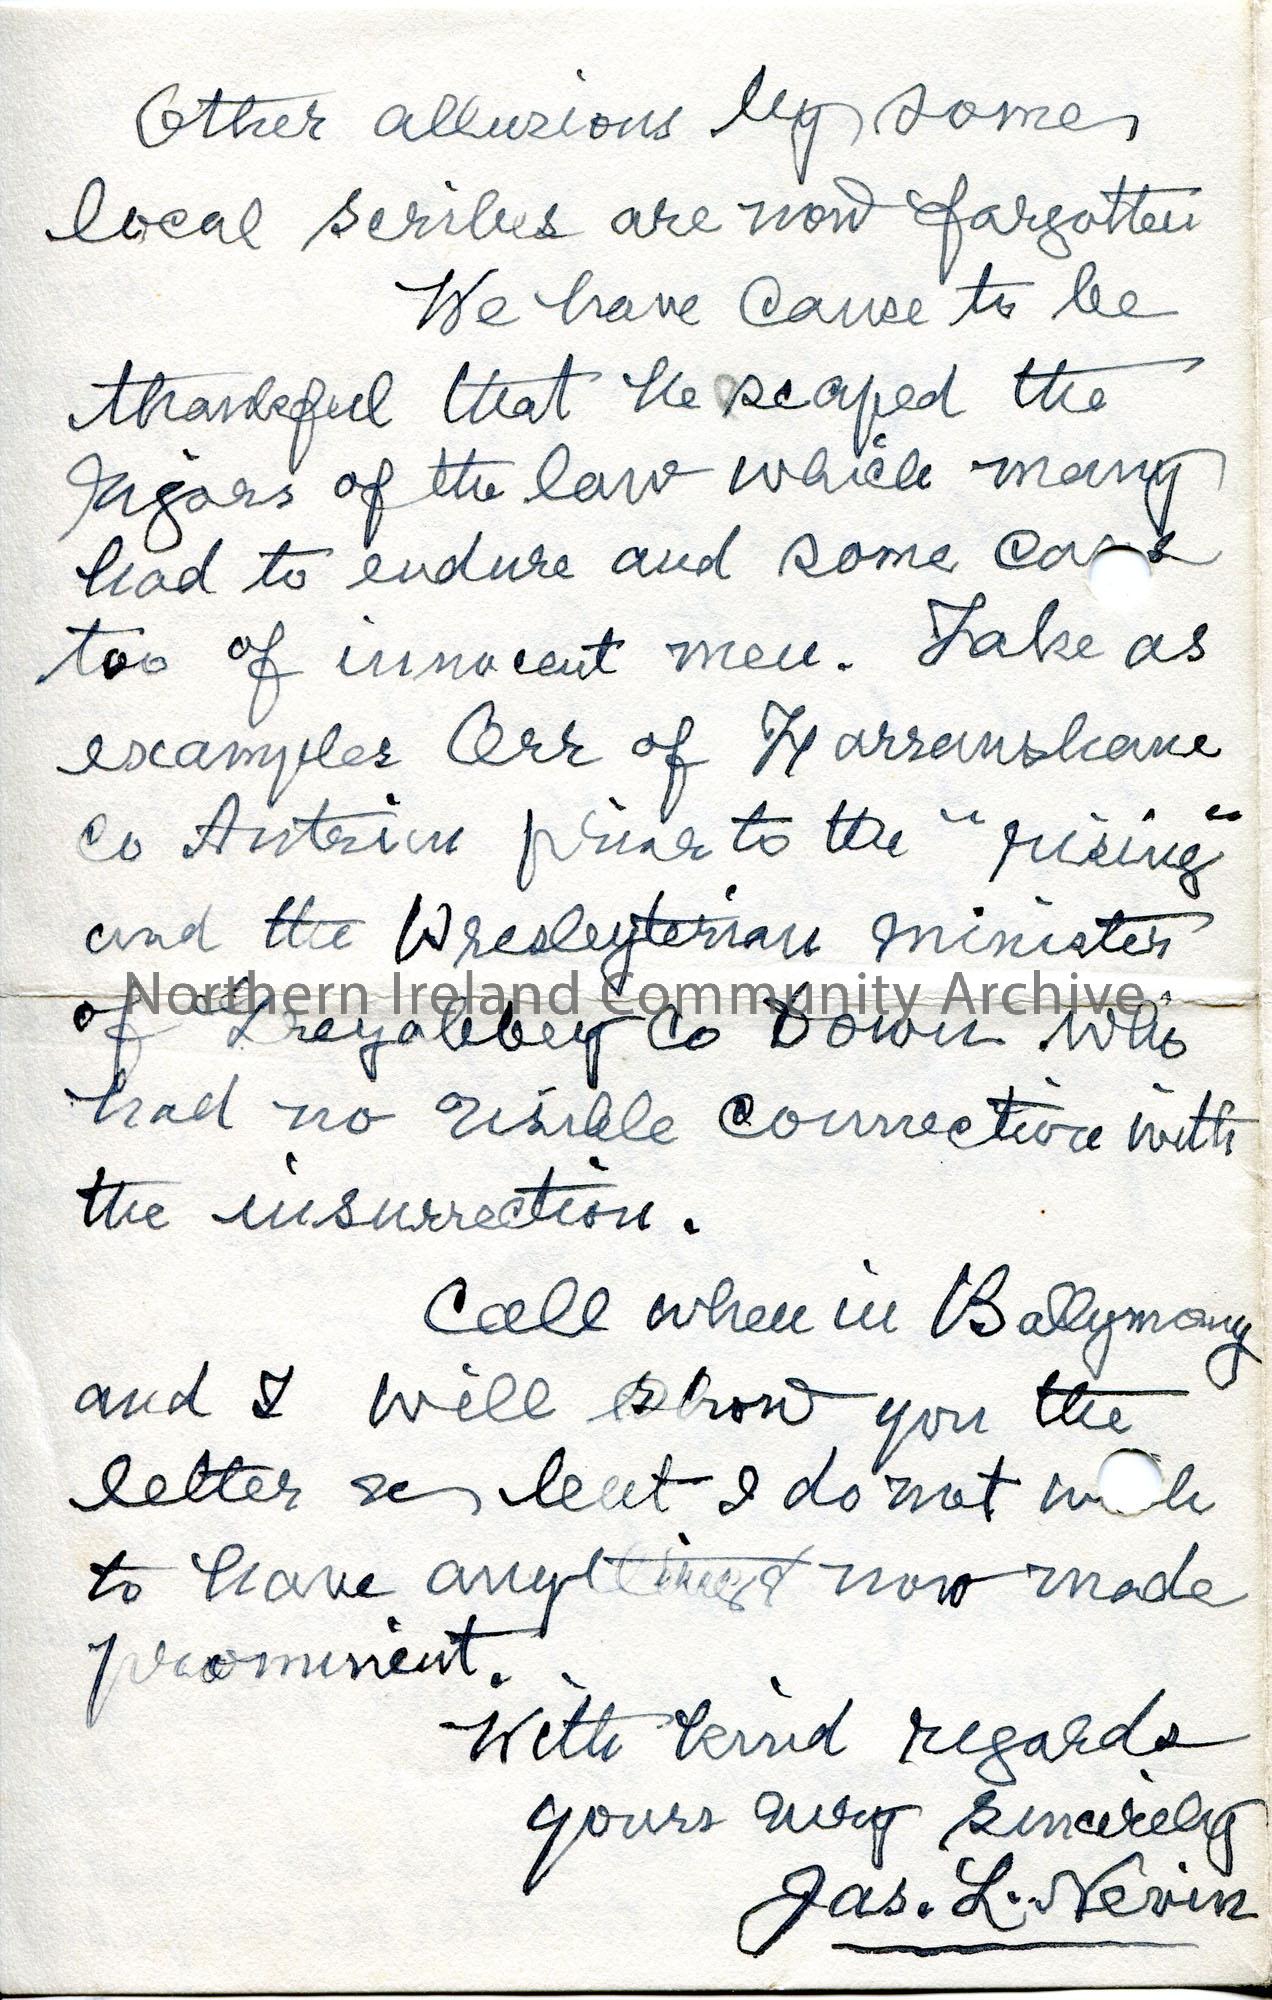 Other allusions by some
local scribes are now forgotten
We have cause to be
thankful that he scaped the
rigors of the law which many
had to endure and some cases
too of innocent men. Take as
examples Orr of Farranshane
Co Antrim prior to the "rising"
and the Presbyterian minister
Northern Ireland Community Archive
of Greyabbey Co Down who
had no visible connection with
the insurrection.
Call when in Ballymony
and I will show you the
letter but I do not wish
to have anything now made
prominent.
With kind regards
yours very sincerely
Jas. L. Nevin